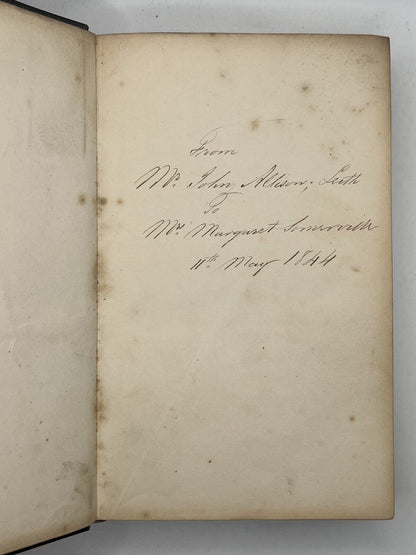 From
Mr. John Allison; Leith
To
Mrs Margaret Somerville
11th May 1844